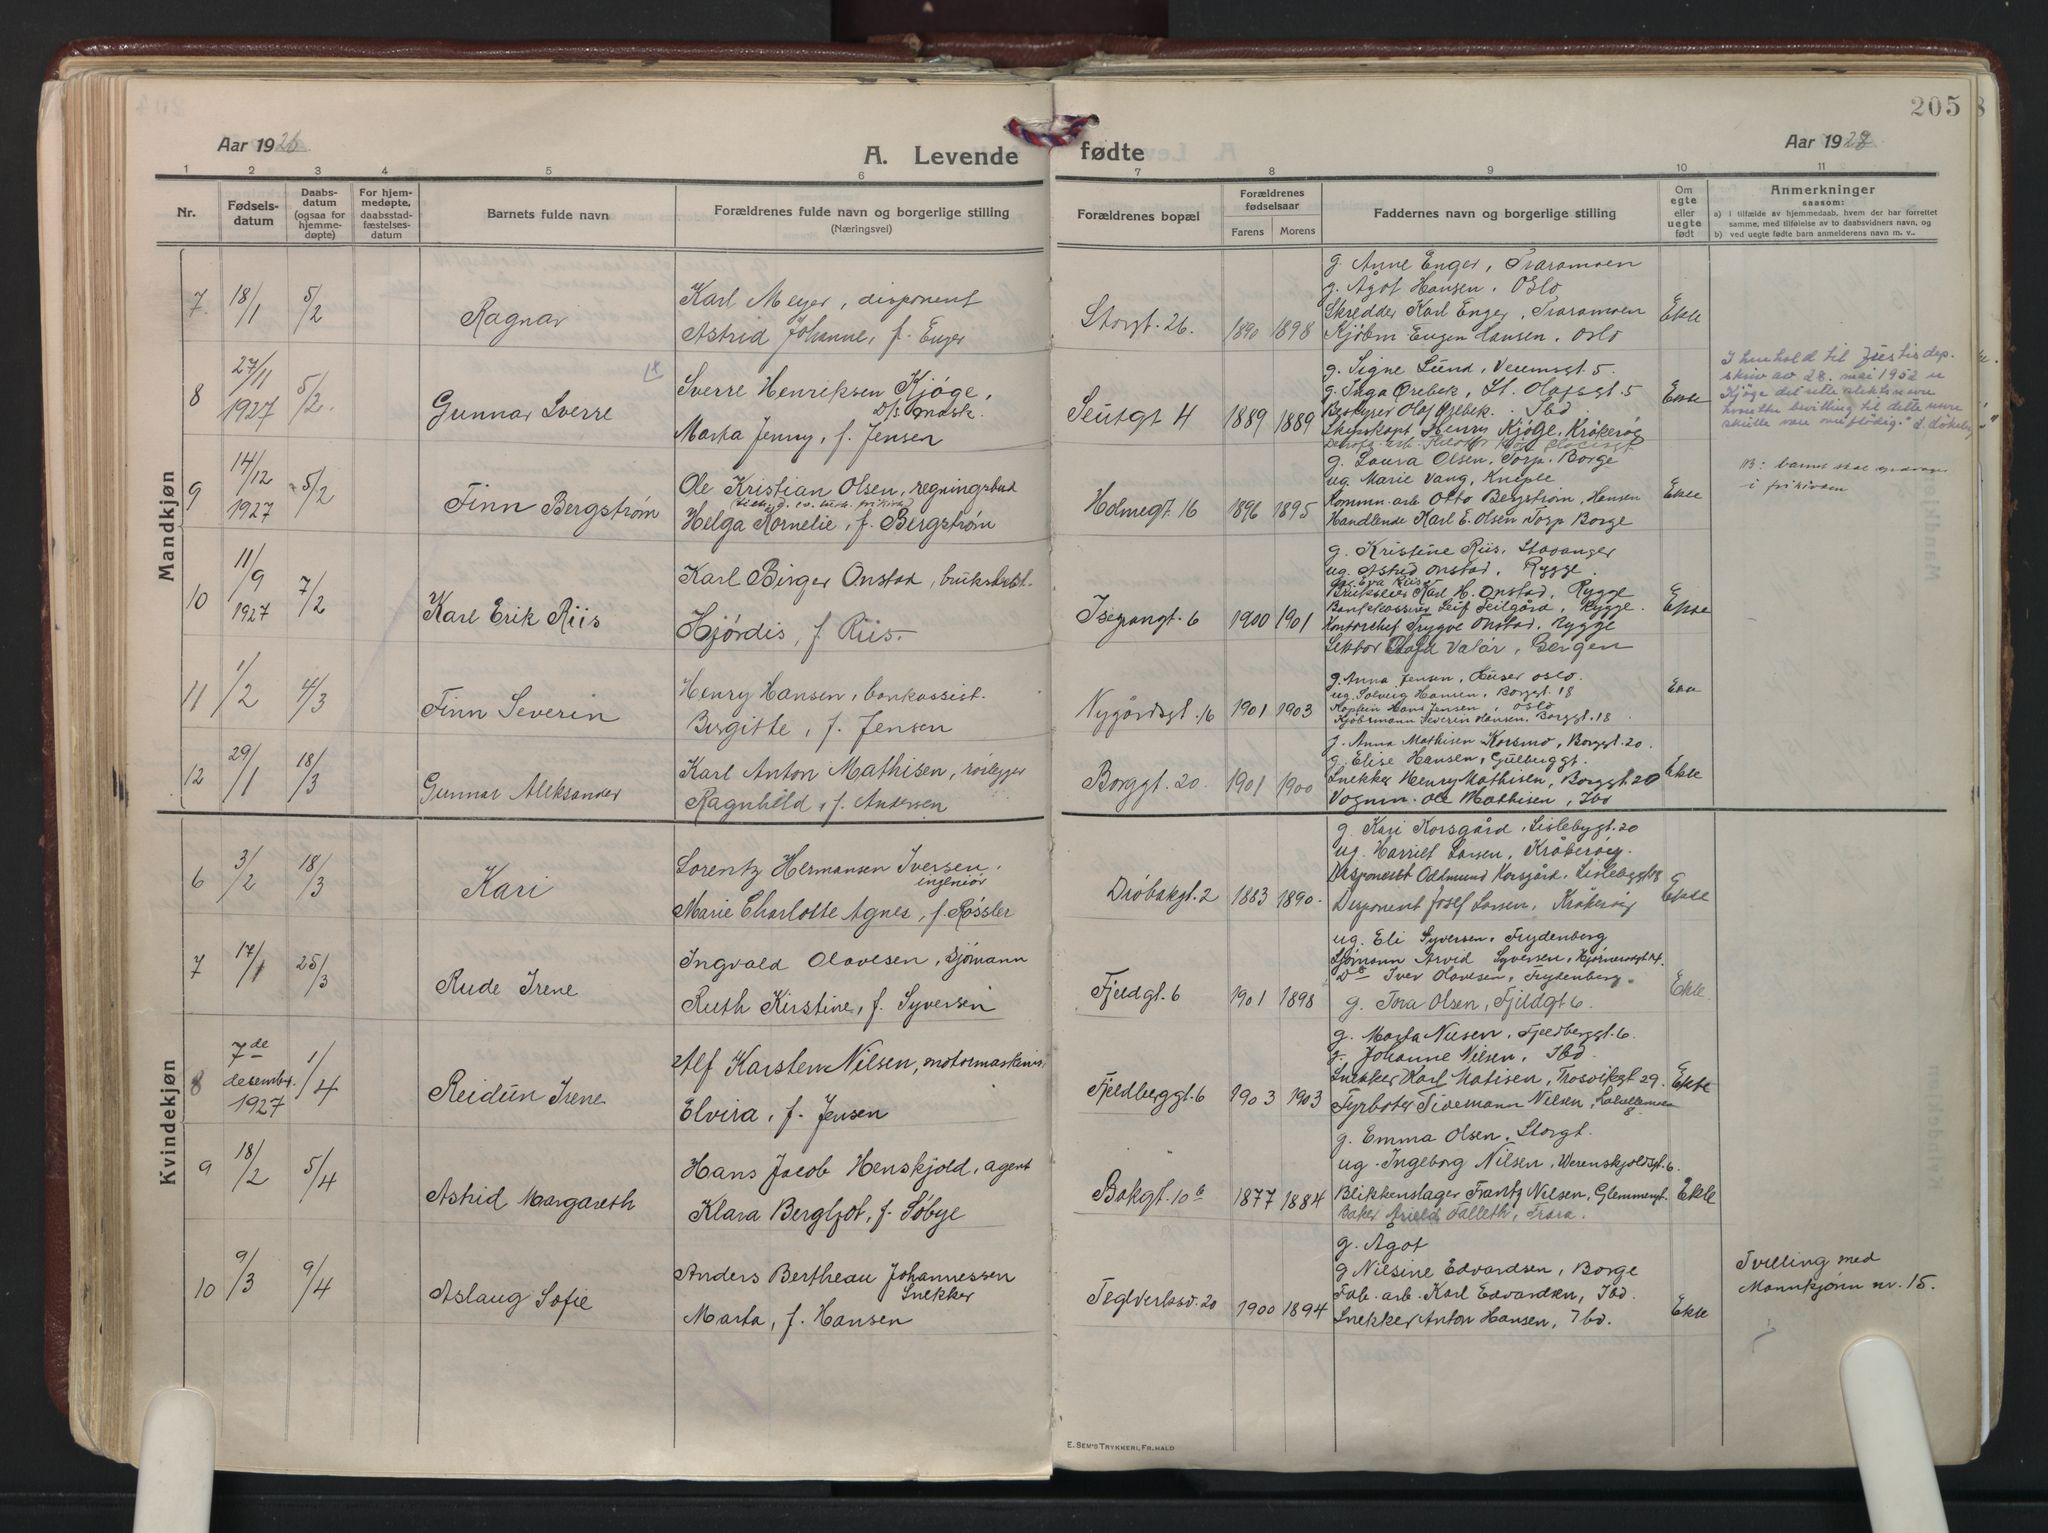 205
Aar 1928
A. Levende fødte
Aar 1928
1 2 3 4 5 6 7 8 9 10 11
Nr.
Fødselsdatum
Daabsdatum (ogsaa for hjemmedøpte)
For hjemmedøpte, daabsstadfæstelsesdatum
Barnets fulde navn
Forældrenes fulde navn og borgerlige stilling (Næringsvei)
Forældrenes bopæl
Forældrenes fødselsaar
Farens Morens
Faddernes navn og borgerlige stilling
Om egte eller uegte født
Anmerkninger
saasom:
a) i tilfælde av hjemmedaab, hvem der har forrettet samme, med tilføielse av to daabsvidners navn, og
b) ved uegte fødte barn anmelderens navn m. v..
Mandkjøn
7 18/1 5/2
Ragnar
Karl Meyer, disponent
Astrid Johanne, f. Enger
Storgt. 26. 1890 1898
g. Anne Enger, Traramoen
g. Ågot Hansen, Oslo
Skredder Karl Enger, Traramoen
Kjøbm Eugen Hansen, Oslo
Ekte
8 27/11 1927 5/2
Gunnar Sverre
Sverre Henriksen Kjøge,
D/S mask.
Marta Jenny, f. Jensen
Seutgt 4 1889 1889
g. Signe Lund, Veumsgt 5.
g. Inga Ørebek, St. Olafsgt. 5
Bestyrer Olaf Ørebek. Ibd
Skipskapt Henry Kjøge, Kråkerøy
Ekte
I henhold til Justisdep.
skriv av 28. mai 1952 er
Kjøge det rette slektsnavn
hvorfor bevilling til dette navn
skulle være overflødig."
9 14/12 1927 5/2
Finn Bergstrøm
Ole Kristian Olsen, regningsbud
Helga Kornelie, f. Bergstrøm
Holmegt 16 1896 1895
g. Laura Olsen, Torp. Borge
ug. Marie Vang, Kniple
Komm. arb Otto Bergstrøm, Hansen
Handlende Karl E. Olsen Torp Borge
Ekte
NB: barnet skal
i frikirken
10 11/9 1927 7/2
Karl Erik Riis
Karl Birger Onstad, bruksbest.
Hjørdis, f. Riis.
Isegrangt. 6 1900 1901
g. Kristine Riis, Stavanger
ug. Astrid Onstad, Rygge.
Eva Riis
Brukseier Karl H. Onstad, Rygge
Bankkasserer Leif Teilgård, Rygge.
Kontorchef Trygve Onstad, Rygge
Lektor Olaf Valør, Bergen
Ekte
11 1/2 4/3
Finn Severin
Henry Hansen, bankassist.
Birgitte, f. Jensen
Nygårdsgt. 16 1901 1903
g. Anna Jensen, Huser Oslo.
ug. Solveig Hansen, Borggt. 18
Kaptein Hans Jensen, Oslo
Kjøbmann Severin Hansen. Borggt. 18
12 29/1 18/3
Gunnar Aleksander
Karl Anton Mathisen, rørlegger
Ragnhild, f. Andersen
Borggt. 20. 1901 1900
g. Anna Mathisen Korsmo, Borggt. 20.
g. Elise Hansen, Gulberggt.
Snekker Henry Mathisen, Borggt. 20
Vognm. Ole Mathisen, Ibd
Ekte
Kvindekjøn
6 3/2 18/3
Kari
Lorentz Hermansen Iversen,
ingeniør
Marie Charlotte Agnes, f. Røssler
Drøbakgt. 2 1883 1890
g. Kari Korsgård, Lislebygt. 20
ug. Harriet Larsen, Kråkerøy.
Disponent Oddmund Korsgård, Lislebygt 18
Disponent Josef Larsen, Kråkerøy
Ekte
7 17/1 25/3
Rude Irene
Ingvald Olavesen, sjømann
Ruth Kirstine, f. Syversen
Fjeldgt. 6 1901 1898
ug. Eli Syversen, Frydenberg
Sjømann Arvid Syversen, Bjørnersgt 14.
Do Iver Olavesen, Frydenberg.
g. Tora Olsen, Fjeldgt 6.
Ekte.
8 7de desembr. 1927 1/4
Reidun Irene
Alf Karsten Nilsen, motormaskinis.
Elvira, f. Jensen
Fjeldberggt. 6 1903 1903
g. Marta Nilsen, Fjeldberggt. 6.
g. Johanne Nilsen, Ibd.
Snekker Karl Matisen, Trosvikgt 29.
Fyrbøter Tidemann Nilsen,
8.
Ekte
9 18/2 5/4
Astrid Margareth
Hans Jacob Henskjold, agent
Klara Bergljot, f. Søbye
Bakgt. 10b 1877 1884
g. Emma Olsen, Storgt.
ug. Ingeborg Nilsen, Werenskjoldsgt. 6.
Blikkenslager Frantz Nilsen, Glemmengt.
Baker Arield Falleth, Trara.
Ekte
10 9/3 9/4
Aslaug Sofie
Anders Bertheau Johannessen
Snekker
Marta, f. Hansen
Teglverksv. 20 1900 1894
g. Ågot
g Nilsine Edvardsen, Borge
Fab. arb. Karl Edvardsen, Ibd.
Snekker Anton Hansen, Ibd.
Ekte
Tvilling med
Mannkjønn nr. 15.
E. Sem's Trykkeri, Fr.hald